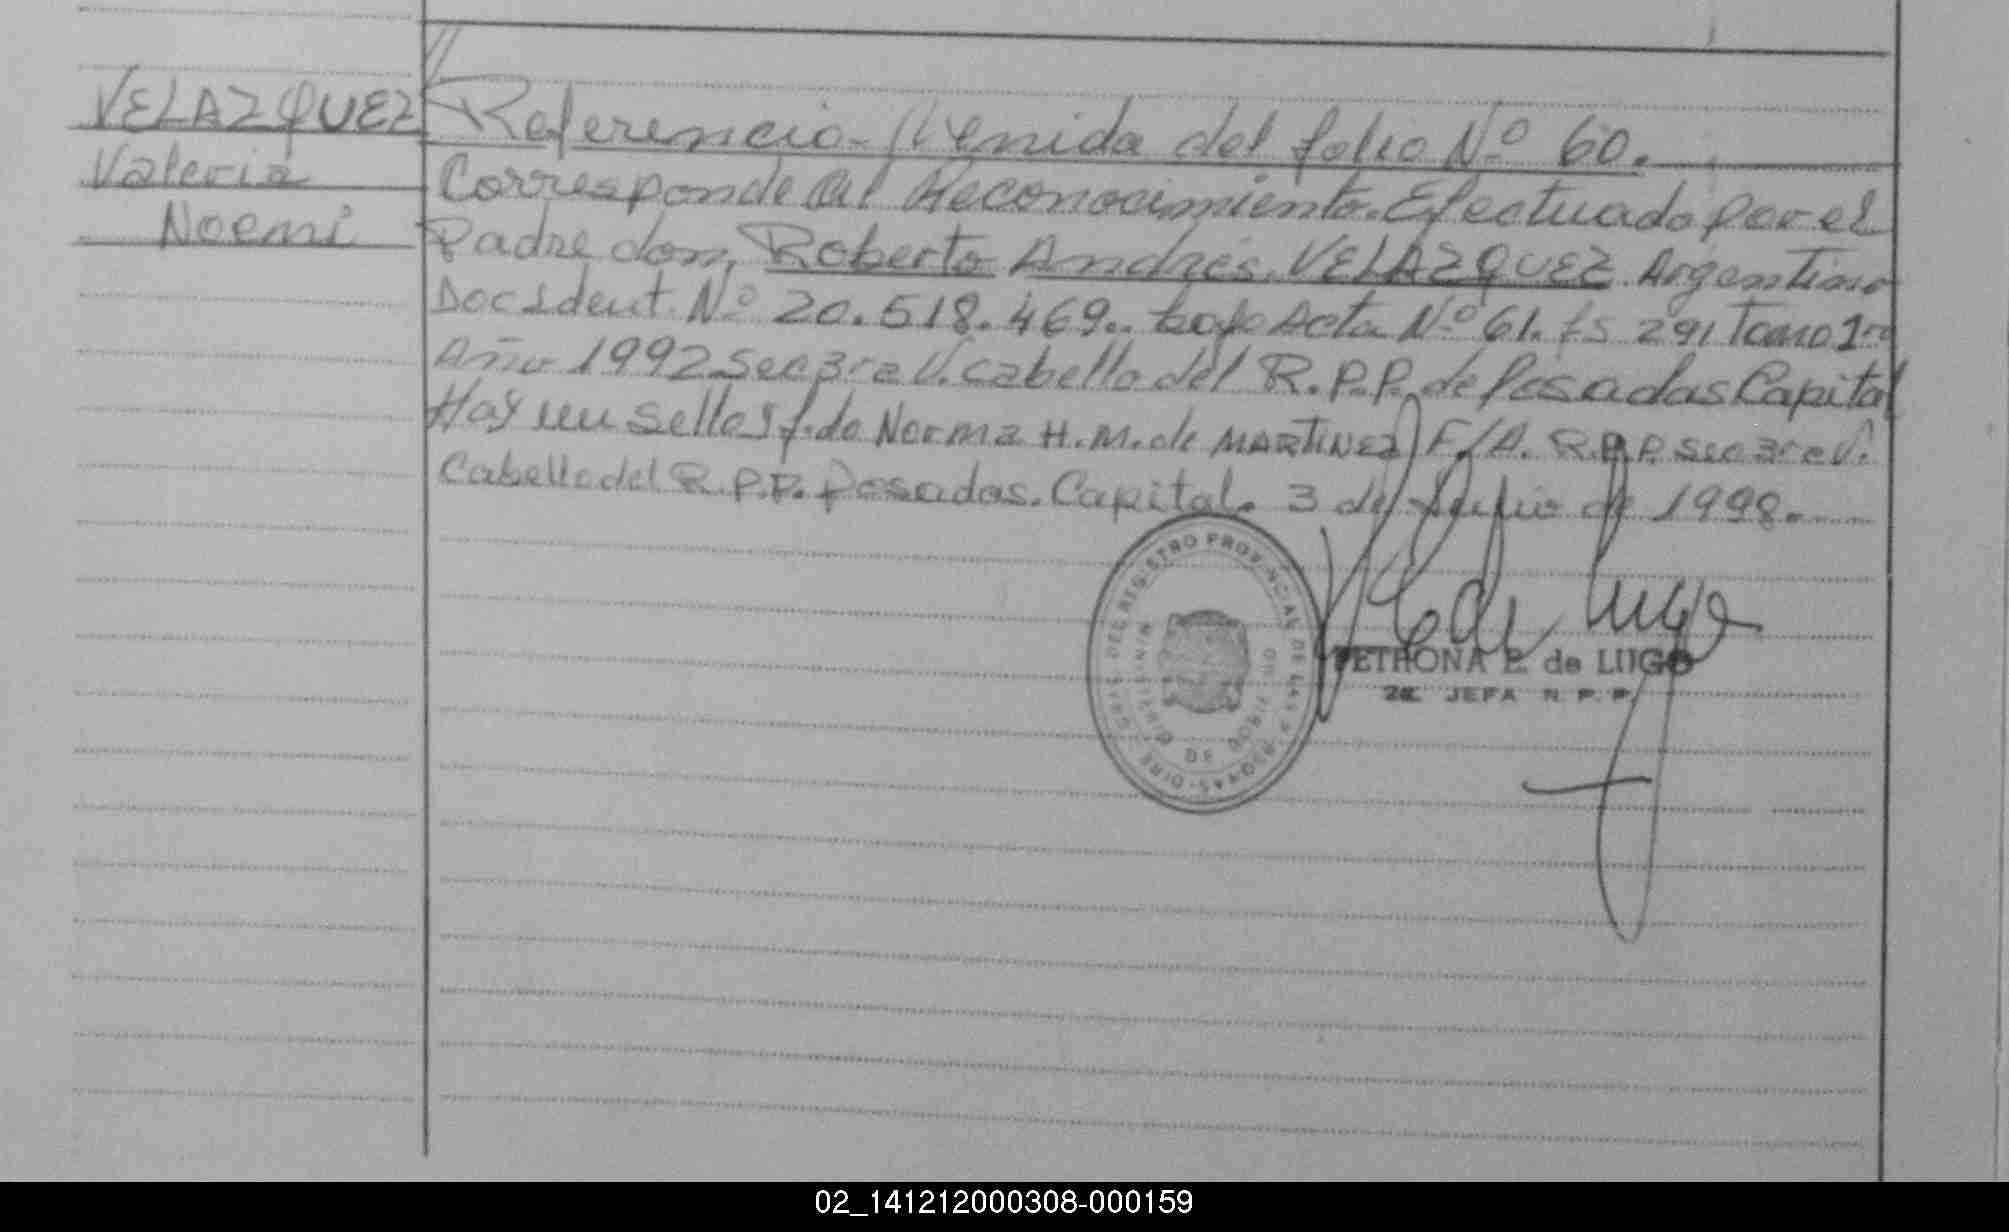 VELAZQUEZ
Valeria
Noemi
Referencia - Venida del folio Nº 60.
Corresponde al Reconocimiento. Efectuado por el
Padre don, Roberto Andrés VELAZQUEZ Argentino
Doc Ident. Nº 20.518.469.. bajo Acta Nº 61. fs 291 Tomo 1ro
Año 1992 Sec 3ra V. Cabello del R.P.P. de Posadas Capital
Hay un sello y f.do Norma H.M. de MARTINEZ F/A. R.P.P. Sec 3ra V.
Cabello del R.P.P. Posadas. Capital. 3 de de 1998.
DEL REGISTRO PROVINCIAL DE LAS PERSONAS
MINISTERIO DE GOBIERNO
PETRONA E. de LUGO
2a. JEFA N. P. P.
02_141212000308-000159